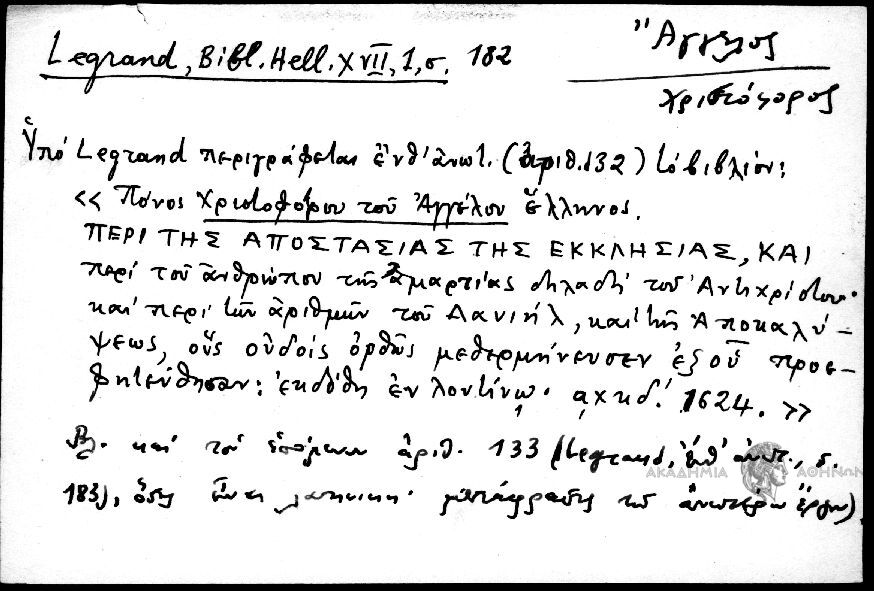 Legrand, Bibl. Hell. XVII, 1, σ. 182
Ἄγγελος
Χριστόφορος
Ὑπό Legrand περιγράφεται ἔνθ' ἀνωτ. (ἀριθ. 132) τό βιβλίον:
<< Πόνος Χριστοφόρου τοῦ Ἀγγέλου ἕλληνος.
ΠΕΡΙ ΤΗΣ ΑΠΟΣΤΑΣΙΑΣ ΤΗΣ ΕΚΚΛΗΣΙΑΣ, ΚΑΙ
περί τοῦ ἀνθρώπου τῆς ἁμαρτίας δηλαδή τοῦ Ἀντιχρίστου·
καί περί τῶν ἀριθμῶν τοῦ Δανιήλ, καί τῆς Ἀποκαλύ-
ψεως, οὕς οὐδείς ὀρθῶς μεθερμήνευσεν ἐξ οὗ προε-
φητεύθησαν: ἐκδόθη ἐν Λοντίνῳ· αχκδ΄. 1624. >>
Βλ. καί τόν ἑπόμενον ἀριθ. 133 (Legrand, ἔνθ' ἀνωτ., σ.
183), ὅστις εἶναι λατινική μετάφρασις τοῦ ἀνωτέρω ἔργου).
ΑΚΑΔΗΜΙΑ ΑΘΗΝΩΝ